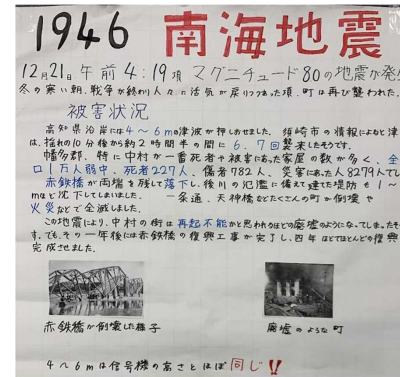 1946 南海地震
12月21日午前4:19頃 マグニチュード8.0の地震が発生
冬の寒い朝、戦争が終わり人々に活気が戻りつつあった頃、町は再び襲われた。
被害状況
高知県沿岸には4〜6mの津波が押しよせました。須崎市の情報によると津波
は、揺れの10分後から約2時間半の間に6、7回襲来したそうです。
幡多郡、特に中村が一番死者や被害にあった家屋の数が多く、全
人口1万人弱中、死者227人、傷者782人、災害にあった人8279人でし
赤鉄橋が両端を残して落下し、後川の氾濫に備えて建てた堤防も1〜
mほど沈下してしまいました。一条通、天神橋などたくさんの町が倒壊や
火災などで全滅しました。
この地震により、中村の街は再起不能かと思われるほどの廃墟のようになってしまったそ
す。でも、その一年後には赤鉄橋の復興工事が完了し、四年ほどでほとんどの復興
完成させました。
赤鉄橋が倒壊した様子
廃墟のような町
4〜6mは信号機の高さとほぼ同じ!!